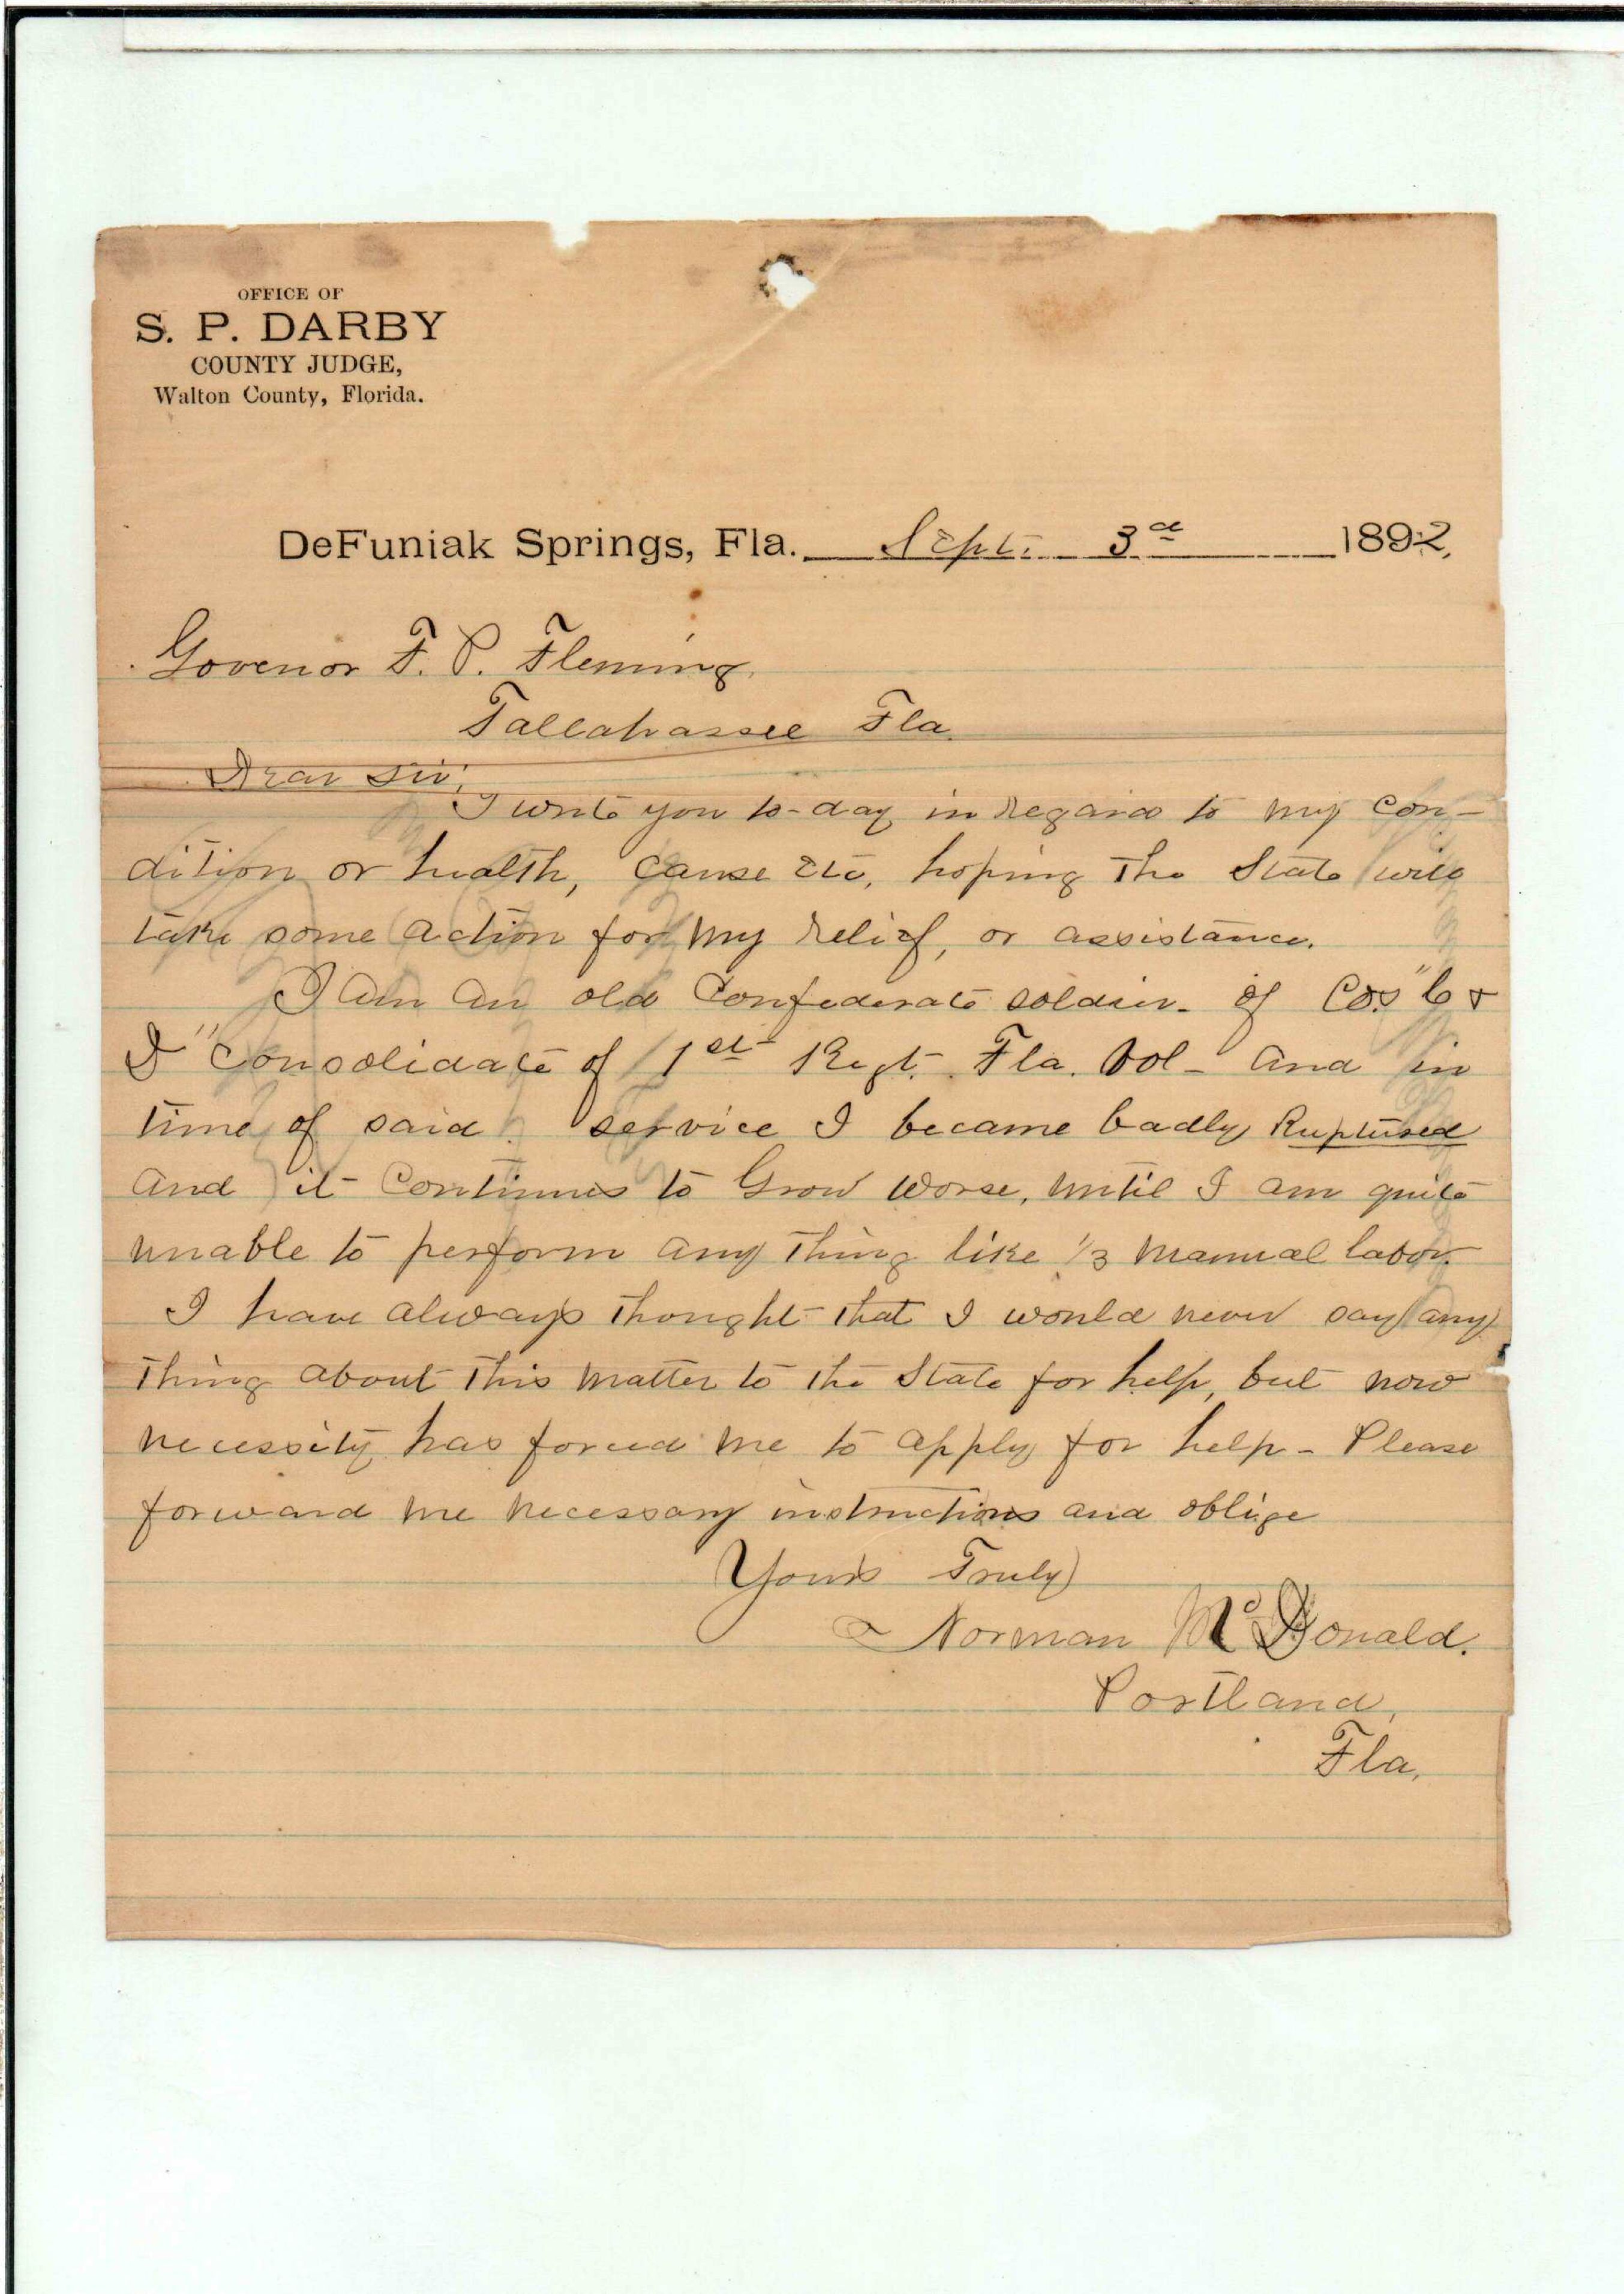 OFFICE OF
S. P. DARBY
COUNTY JUDGE,
Walton County, Florida.
DeFuniak Springs, Fla. Sept. 3d 1892,
Govenor F. P. Fleming.
Tallahassee Fla.
Dear Sir,
I write you to-day in regard to my con-
dition or health, cause etc, hoping the State will
take some action for my relief, or assistance.
I am an old Confederate soldier - of Cos "C &
I" Consolidate of 1st Regt. Fla. Vol - and in
time of said service I became badly Ruptured
and it continues to Grow worse, until I am quite
unable to perform any thing like 1/3 manual labor.
I have always thought that I would never say any
thing about this matter to the State for help, but now
necessity has forced me to apply for help - Please
forward me necessary instructions and oblige
Yours Truly
Norman McDonald.
Portland,
Fla.